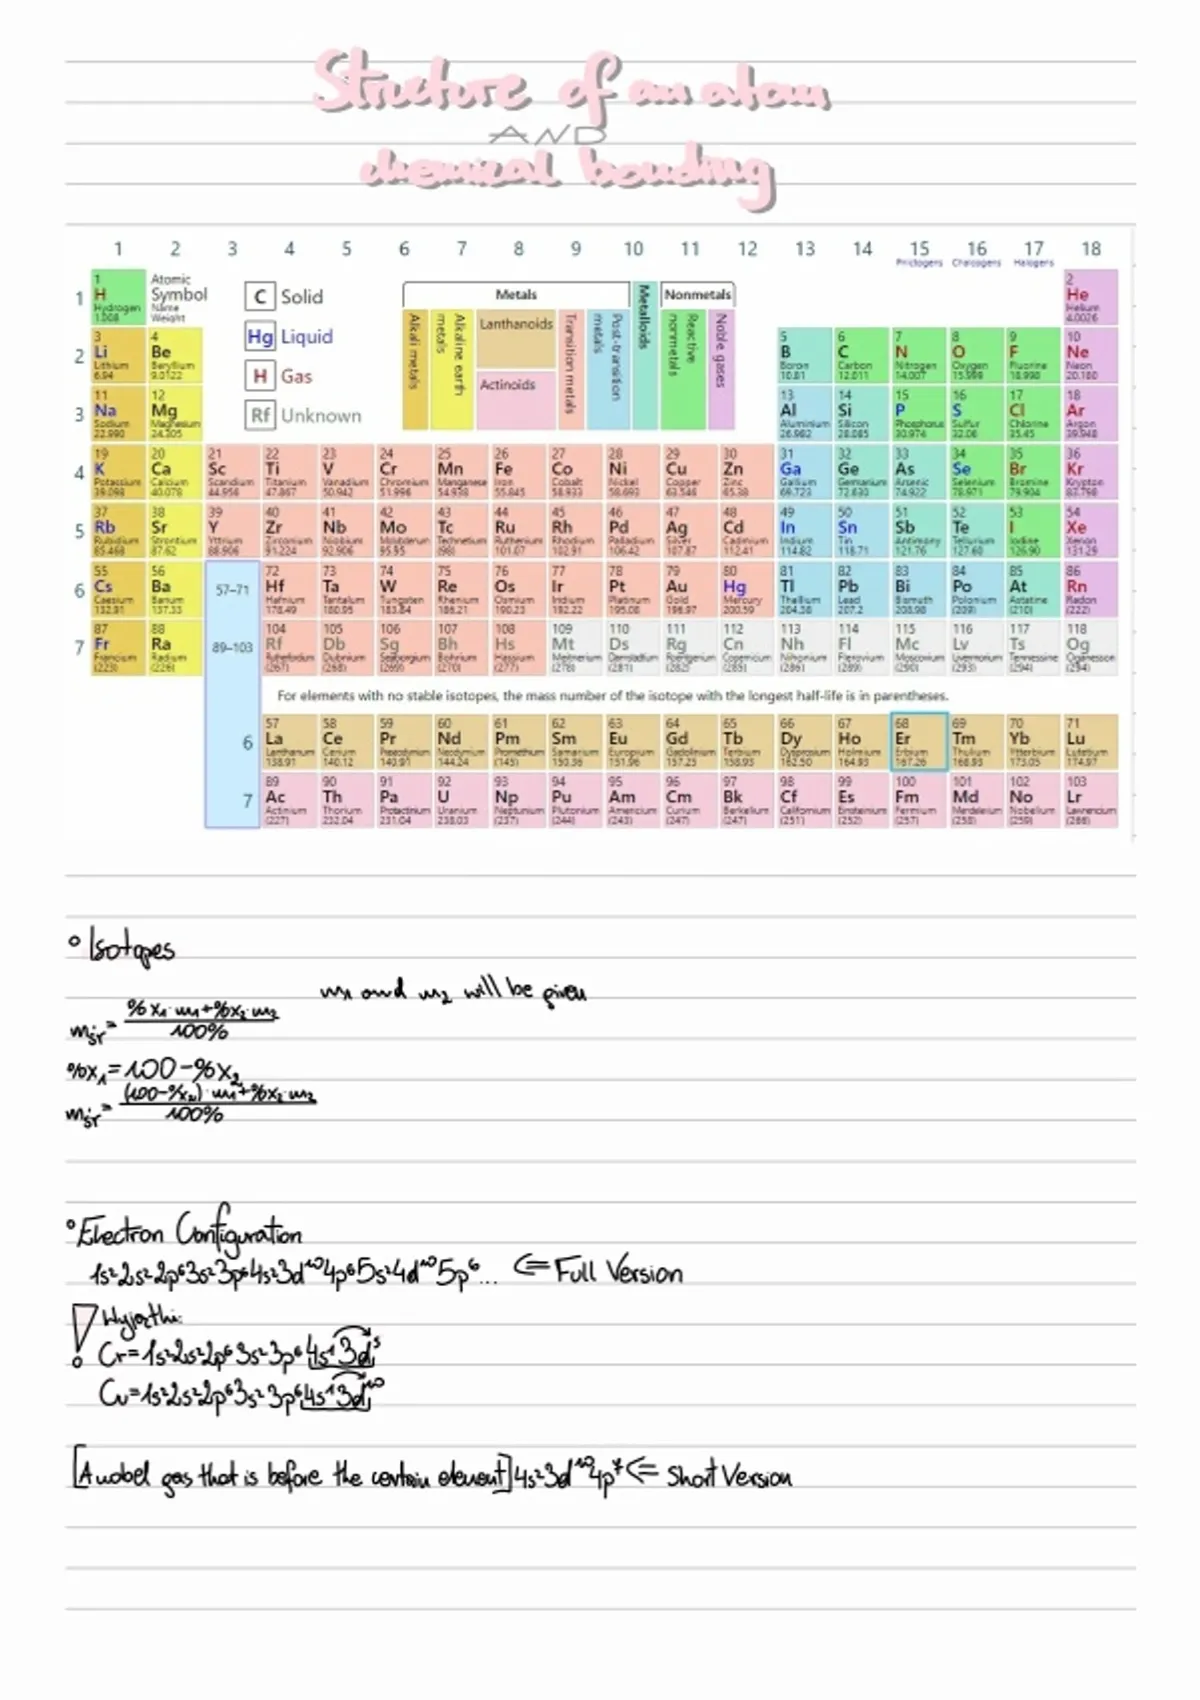 Structure of an atom
AND
chemical bonding
1 2 3 4 5 6 7 8 9 10 11 12 13 14 15 16 17 18
Pnictogens Chalcogens Halogens
1 H Hydrogen 1.008
Atomic Symbol Name Weight
C Solid
Hg Liquid
H Gas
Rf Unknown
Metals
Metalloids
Nonmetals
Alkali metals
Alkaline earth metals
Lanthanoids
Actinoids
Transition metals
Post-transition metals
Reactive nonmetals
Noble gases
2 He Helium 4.0026
2
3 Li Lithium 6.94
4 Be Beryllium 9.0122
5 B Boron 10.81
6 C Carbon 12.011
7 N Nitrogen 14.007
8 O Oxygen 15.999
9 F Fluorine 18.998
10 Ne Neon 20.180
3
11 Na Sodium 22.990
12 Mg Magnesium 24.305
13 Al Aluminium 26.982
14 Si Silicon 28.085
15 P Phosphorus 30.974
16 S Sulfur 32.06
17 Cl Chlorine 35.45
18 Ar Argon 39.948
4
19 K Potassium 39.098
20 Ca Calcium 40.078
21 Sc Scandium 44.956
22 Ti Titanium 47.867
23 V Vanadium 50.942
24 Cr Chromium 51.996
25 Mn Manganese 54.938
26 Fe Iron 55.845
27 Co Cobalt 58.933
28 Ni Nickel 58.693
29 Cu Copper 63.546
30 Zn Zinc 65.38
31 Ga Gallium 69.723
32 Ge Germanium 72.630
33 As Arsenic 74.922
34 Se Selenium 78.971
35 Br Bromine 79.904
36 Kr Krypton 83.798
5
37 Rb Rubidium 85.468
38 Sr Strontium 87.62
39 Y Yttrium 88.906
40 Zr Zirconium 91.224
41 Nb Niobium 92.906
42 Mo Molybdenum 95.95
43 Tc Technetium (98)
44 Ru Ruthenium 101.07
45 Rh Rhodium 102.91
46 Pd Palladium 106.42
47 Ag Silver 107.87
48 Cd Cadmium 112.41
49 In Indium 114.82
50 Sn Tin 118.71
51 Sb Antimony 121.76
52 Te Tellurium 127.60
53 I Iodine 126.90
54 Xe Xenon 131.29
6
55 Cs Caesium 132.91
56 Ba Barium 137.33
57–71
72 Hf Hafnium 178.49
73 Ta Tantalum 180.95
74 W Tungsten 183.84
75 Re Rhenium 186.21
76 Os Osmium 190.23
77 Ir Iridium 192.22
78 Pt Platinum 195.08
79 Au Gold 196.97
80 Hg Mercury 200.59
81 Tl Thallium 204.38
82 Pb Lead 207.2
83 Bi Bismuth 208.98
84 Po Polonium (209)
85 At Astatine (210)
86 Rn Radon (222)
7
87 Fr Francium (223)
88 Ra Radium (226)
89–103
104 Rf Rutherfordium (267)
105 Db Dubnium (268)
106 Sg Seaborgium (269)
107 Bh Bohrium (270)
108 Hs Hassium (277)
109 Mt Meitnerium (278)
110 Ds Darmstadtium (281)
111 Rg Roentgenium (282)
112 Cn Copernicium (285)
113 Nh Nihonium (286)
114 Fl Flerovium (289)
115 Mc Moscovium (290)
116 Lv Livermorium (293)
117 Ts Tennessine (294)
118 Og Oganesson (294)
For elements with no stable isotopes, the mass number of the isotope with the longest half-life is in parentheses.
6
57 La Lanthanum 138.91
58 Ce Cerium 140.12
59 Pr Praseodymium 140.91
60 Nd Neodymium 144.24
61 Pm Promethium (145)
62 Sm Samarium 150.36
63 Eu Europium 151.96
64 Gd Gadolinium 157.25
65 Tb Terbium 158.93
66 Dy Dysprosium 162.50
67 Ho Holmium 164.93
68 Er Erbium 167.26
69 Tm Thulium 168.93
70 Yb Ytterbium 173.05
71 Lu Lutetium 174.97
7
89 Ac Actinium (227)
90 Th Thorium 232.04
91 Pa Protactinium 231.04
92 U Uranium 238.03
93 Np Neptunium (237)
94 Pu Plutonium (244)
95 Am Americium (243)
96 Cm Curium (247)
97 Bk Berkelium (247)
98 Cf Californium (251)
99 Es Einsteinium (252)
100 Fm Fermium (257)
101 Md Mendelevium (258)
102 No Nobelium (259)
103 Lr Lawrencium (266)
° Isotopes
m₁ and m₂ will be given
mśr = %x₁·m₁+%x₂·m₂ / 100%
%x₁=100-%x₂
mśr = (100-%x₂)·m₁+%x₂·m₂ / 100%
° Electron Configuration
1s²2s²2p⁶3s²3p⁶4s²3d¹⁰4p⁶5s²4d¹⁰5p⁶... ⇐ Full Version
! Wyjątki:
Cr=1s²2s²2p⁶3s²3p⁶4s¹3d⁵
Cu=1s²2s²2p⁶3s²3p⁶4s¹3d¹⁰
[A nobel gas that is before the certain element]4s²3d¹⁰4pˣ ⇐ Short Version